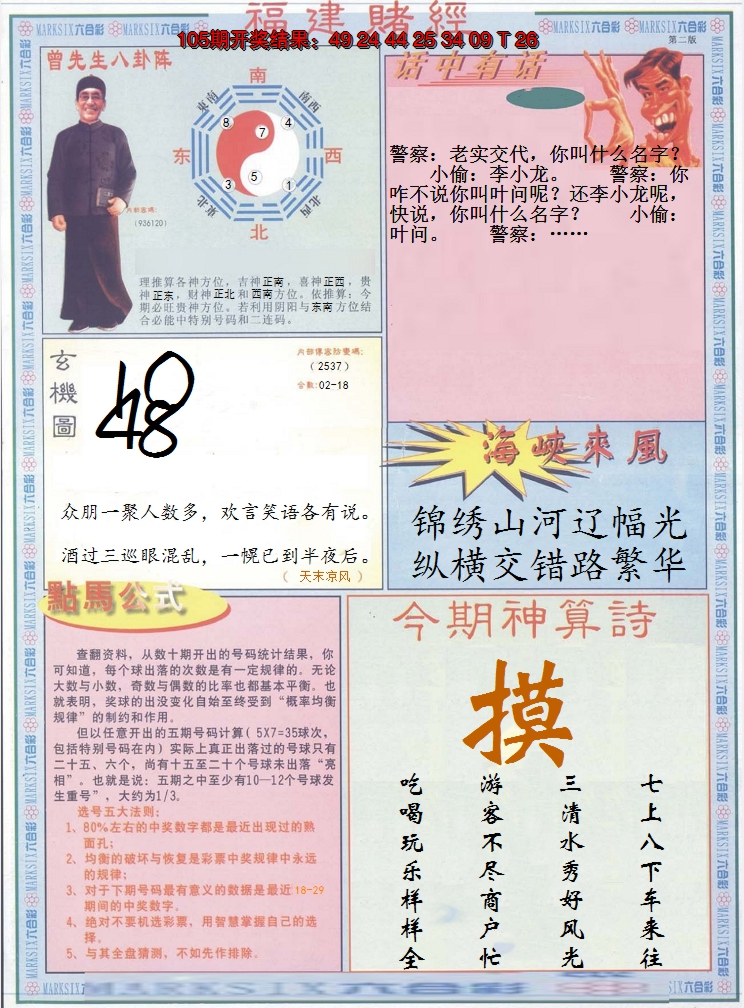 福建賭經
105期开奖结果：49 24 44 25 34 09 T 26
MARKSIX六合彩 MARKSIX六合彩 MARKSIX六合彩
第二版
曾先生八卦陈
南
東南 西南
8 7 4
东 西
3 5 1
東北 西北
北
内部密碼:
(936120)
理推算各神方位，吉神正南，喜神正西，贵
神正东，财神正北和西南方位。依推算：今
期必旺贵神方位。若利用阴阳与东南方位结
合必能中特别号码和二连码。
话中有话
警察：老实交代，你叫什么名字？
小偷：李小龙。 警察：你
咋不说你叫叶问呢？还李小龙呢，
快说，你叫什么名字？ 小偷：
叶问。 警察：……
玄機圖
内部傳密防變碼:
（2537）
合數:02-18
48
众朋一聚人数多，欢言笑语各有说。
酒过三巡眼混乱，一幌已到半夜后。
（ 天末凉风 ）
海峽來風
锦绣山河辽幅光
纵横交错路繁华
點馬公式
查翻资料，从数十期开出的号码统计结果，你
可知道，每个球出落的次数是有一定规律的。无论
大数与小数，奇数与偶数的比率也都基本平衡。也
就表明，奖球的出没变化自始至终受到“概率均衡
规律”的制约和作用。
但以任意开出的五期号码计算( 5X7=35球次，
包括特别号码在内) 实际上真正出落过的号球只有
二十五、六个，尚有十五至二十个号球未出落“亮
相”。也就是说：五期之中至少有10—12个号球发
生重号”，大约为1/3。
选号五大法则：
1、80%左右的中奖数字都是最近出现过的熟
面孔；
2、均衡的破坏与恢复是彩票中奖规律中永远
的规律；
3、对于下期号码最有意义的数据是最近18-29
期间的中奖数字。
4、绝对不要机选彩票，用智慧掌握自己的选
择。
5、与其全盘猜测，不如先作排除。
今期神算詩
摸
七上八下车来往
三清水秀好风光
游客不尽商户忙
吃喝玩乐样样全